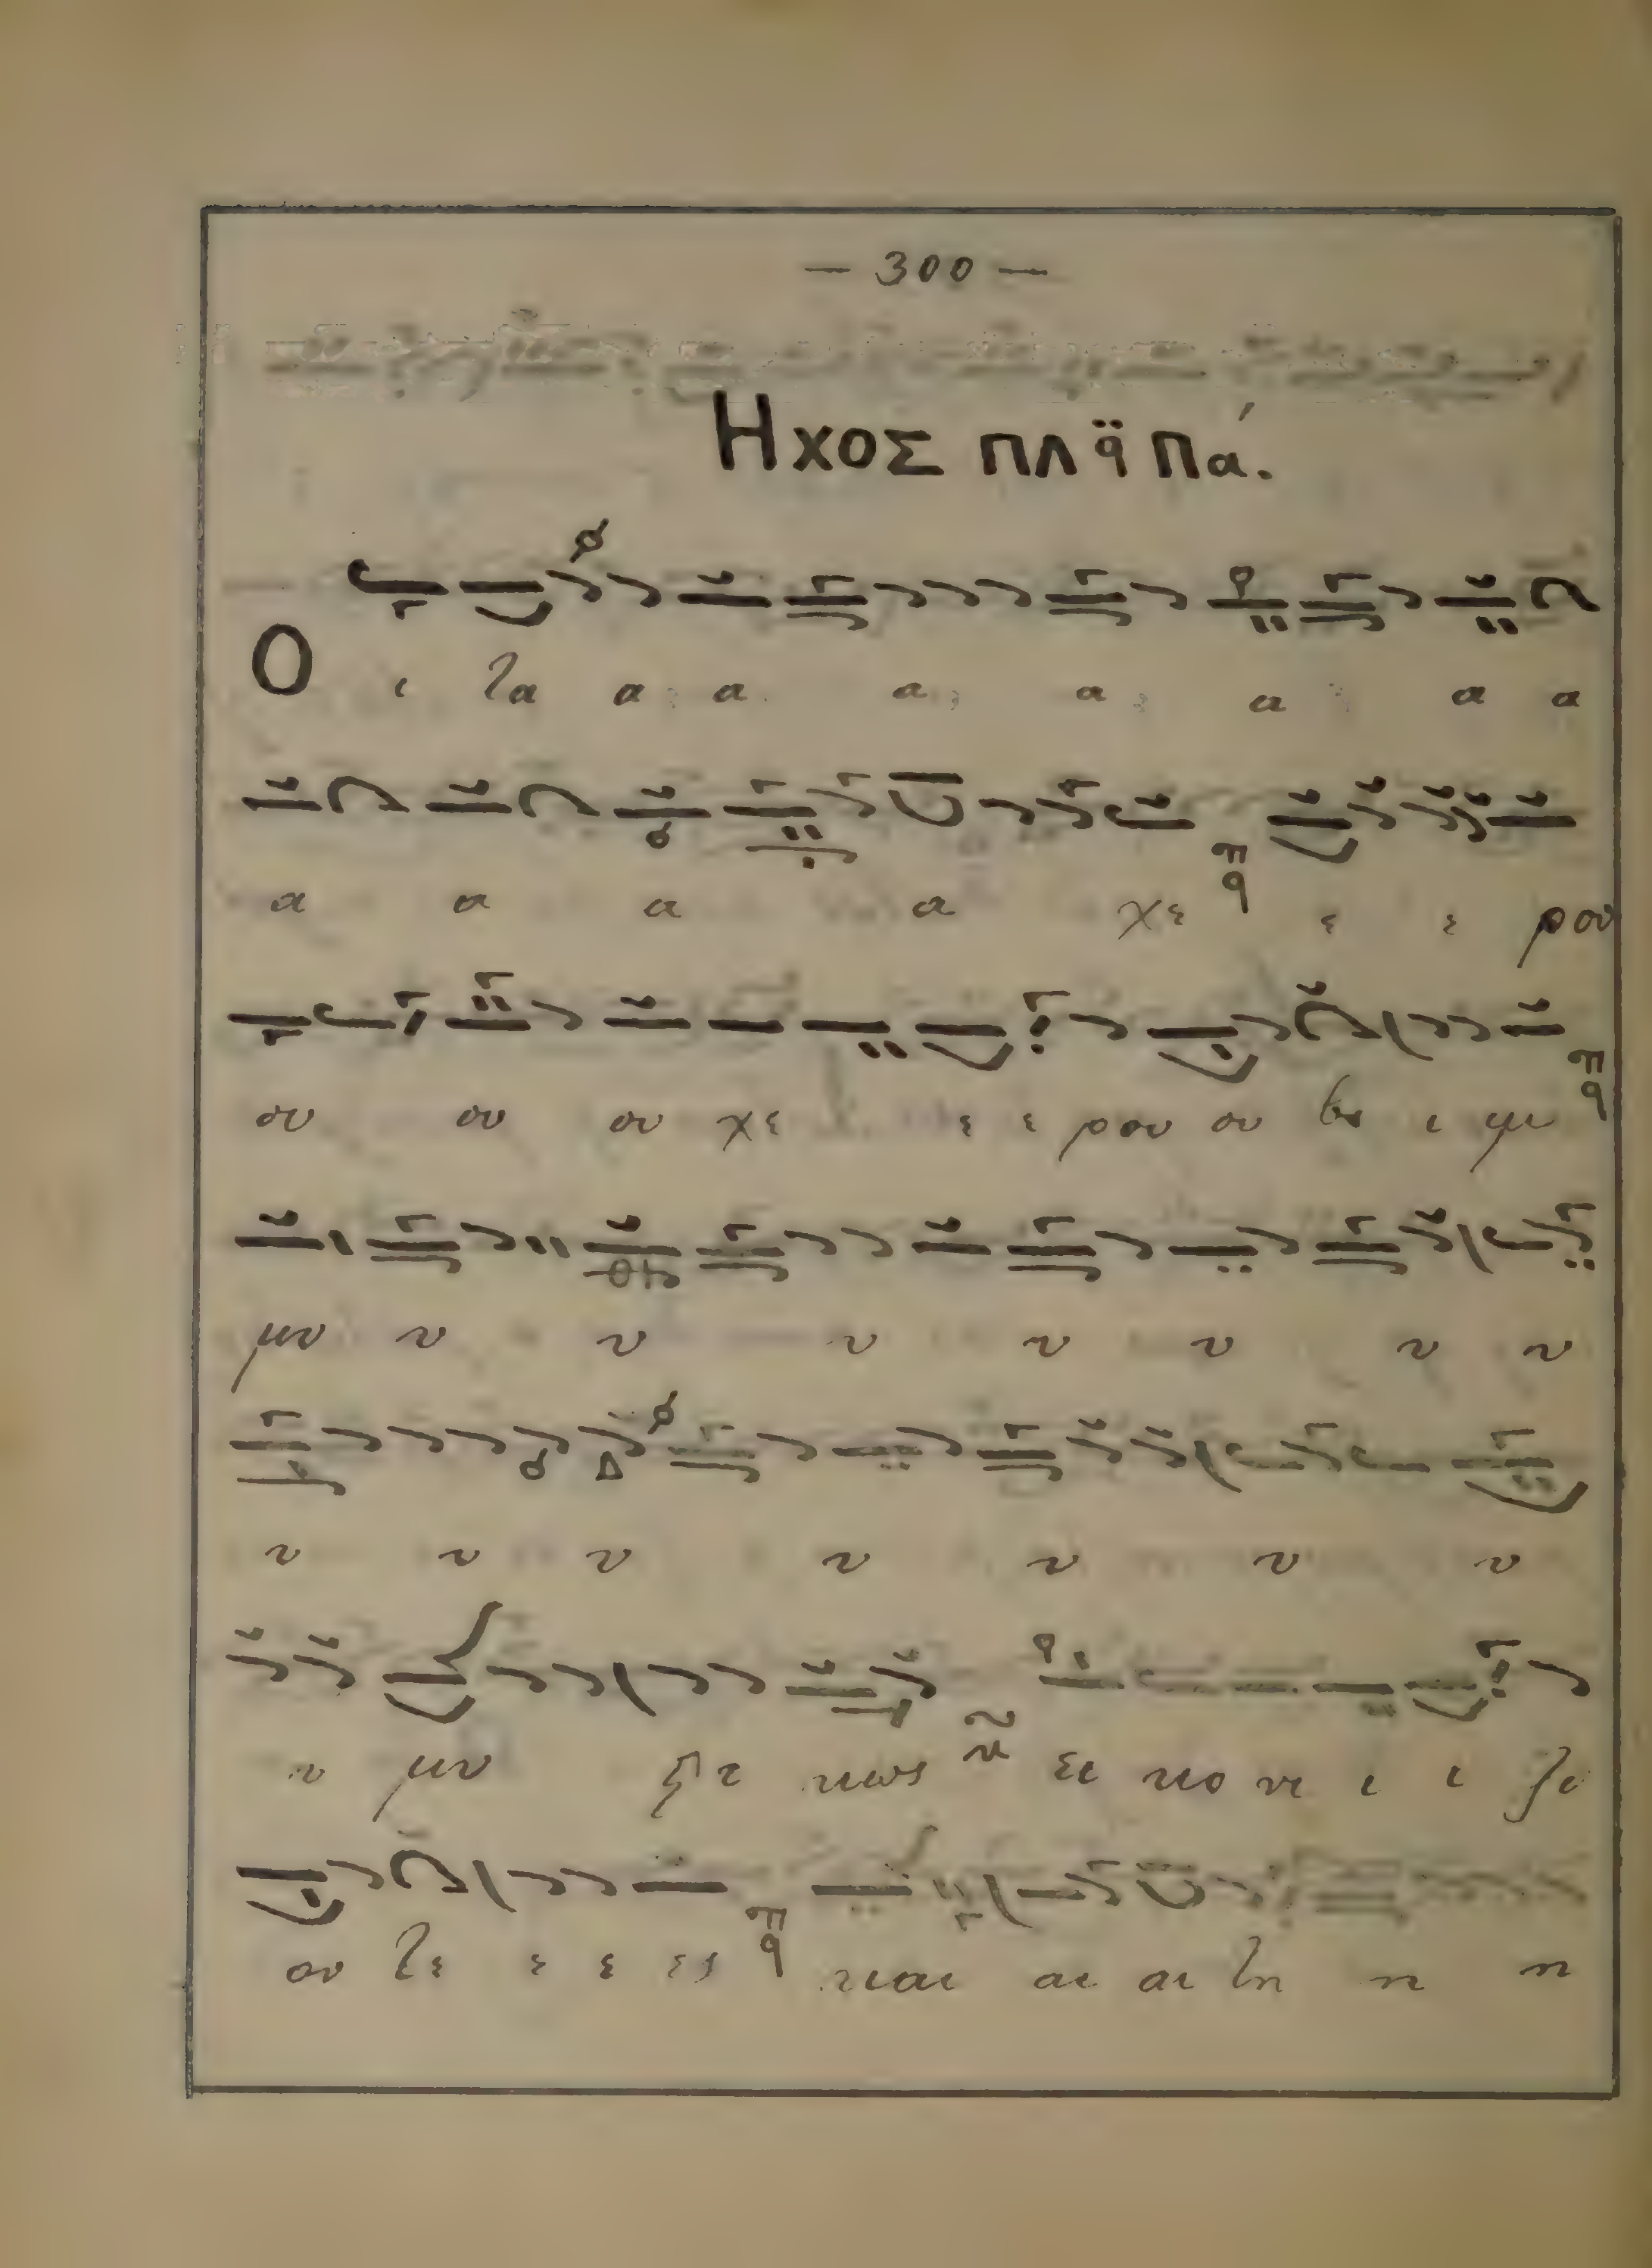 — 300 —
Ηχος πλ ᾳ̈ Πα.
Ο ι τα α α α α α α α
α α α α χε ε ε ρου
ου ου ου χε ε ε ρου ου βι ι μι
μυ υ υ υ υ υ υ υ
υ υ υ υ υ υ υ
υ μυ στι κως ει κο νι ι ι ζο
ου τε ε ε ες και αι αι τη η η